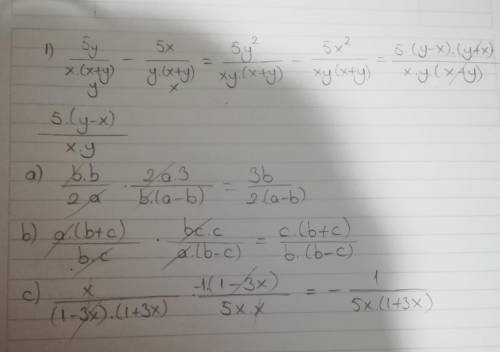 1) 5y/(x.(x+y)) y - 5x/(y.(x+y)) x = 5y²/(xy.(x+y)) - 5x²/(xy(x+y)) = 5.(y-x).(y+x)/(x.y.(x+y))
5.(y-x)/(x.y)
a) b.b/(2.a) . 2.a.3/(b.(a-b)) = 3b/(2.(a-b))
b) a.(b+c)/(b.c) . bc.c/(a.(b-c)) = c.(b+c)/(b.(b-c))
c) x/((1-3x).(1+3x)) . -1.(1-3x)/(5x.x) = - 1/(5x.(1+3x))